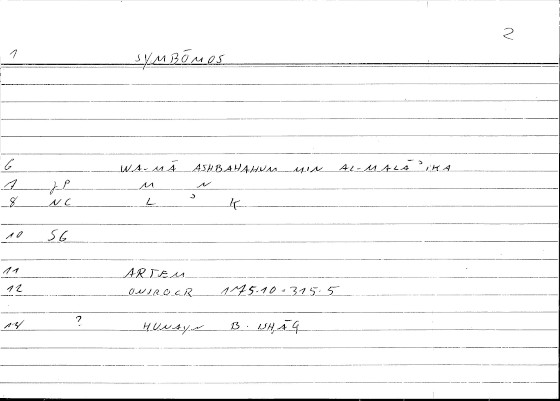 2
1 SYMBŌMOS
6 WA-MĀ ASHBAHAHUM MIN AL-MALĀʾIKA
7 JP M N
8 NC L ʾ K
10 SG
11 ARTEM
12 ONIROCR 175.10 = 315.5
14 ? ḤUNAYN B. ISḤĀQ